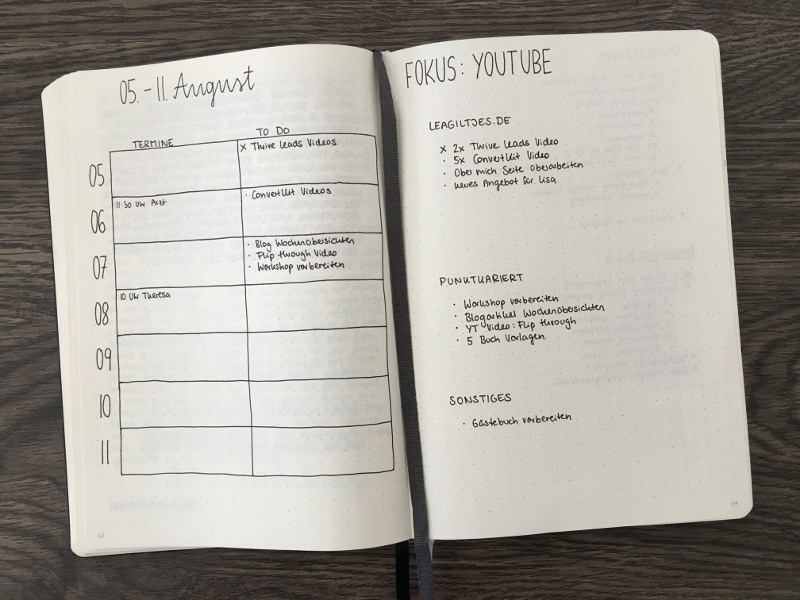 05. - 11. August
TERMINE
TO DO
05
x Thrive Leads Videos
06
11:50 Uhr Arzt
· ConvertKit Videos
07
· Blog Wochenübersichten
· Flip through Video
· Workshop vorbereiten
08
10 Uhr Theresa
09
10
11
FOKUS: YOUTUBE
LEAGILTJES.DE
x 2x Thrive Leads Video
· 5x ConvertKit Video
· Über mich Seite überarbeiten
· neues Angebot für Lisa
PUNKTKARIERT
· Workshop vorbereiten
· Blogartikel Wochenübersichten
· YT Video: Flip through
· 5 Buch Vorlagen
SONSTIGES
· Gästebuch vorbereiten